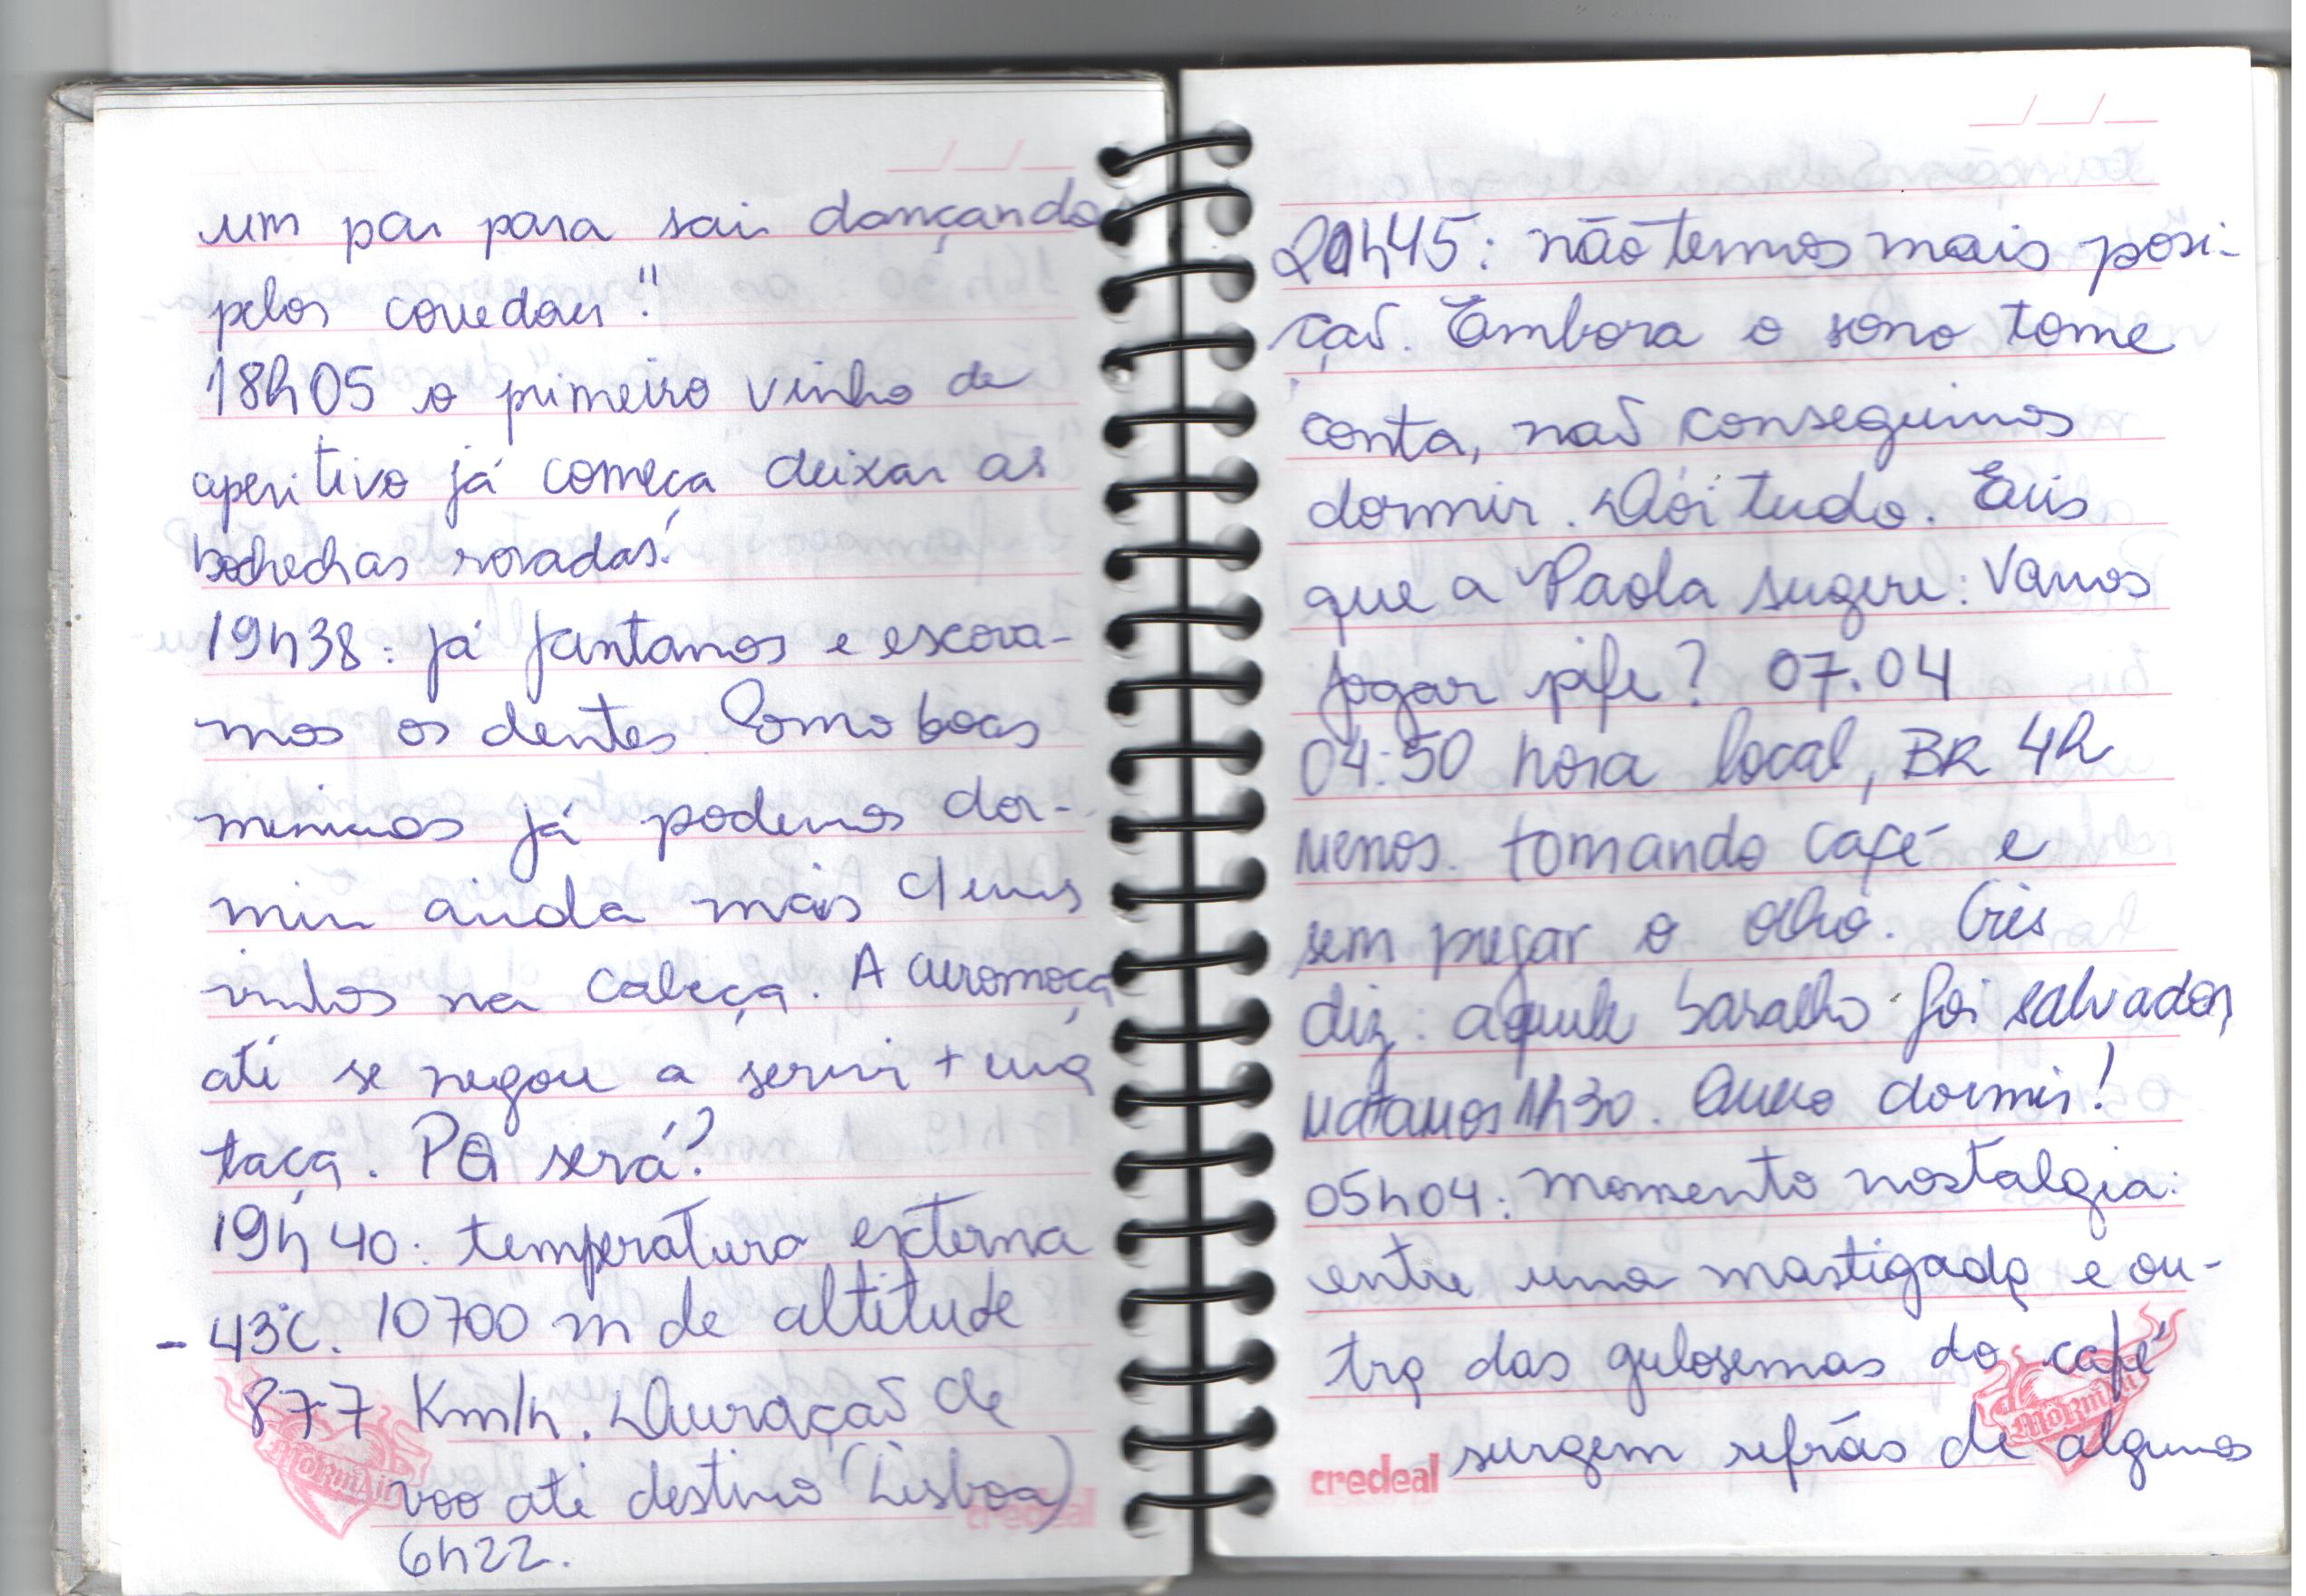 um par para sair dançando
pelos corredores."
18h05 o primeiro vinho de
aperitivo já começa deixar as
bochechas rosadas!
19h38: já jantamos e escova-
mos os dentes. Como boas
meninas já podemos dor-
mir ainda mais c/ uns
vinhos na cabeça. A aeromoça
até se negou a servir + uma
taça. PQ será?
19h40: temperatura externa
-43°C. 10700 m de altitude
877 Km/h. Duração de
voo até destino (Lisboa)
6h22.
credeal
MORMAII
21h45: não temos mais posi-
ção. Embora o sono tome
conta, não conseguimos
dormir. Dói tudo. Eis
que a Paola sugere: Vamos
jogar pife? 07.04
04:50 hora local, BR 4h
menos. tomando café e
sem pregar o olho. Cris
diz: aquele baralho foi salvador,
matamos 1h30. Quero dormir!
05h04: momento nostalgia:
entre uma mastigada e ou-
tra das guloseimas do café
surgem refrãs de alguns
credeal
MORMAII